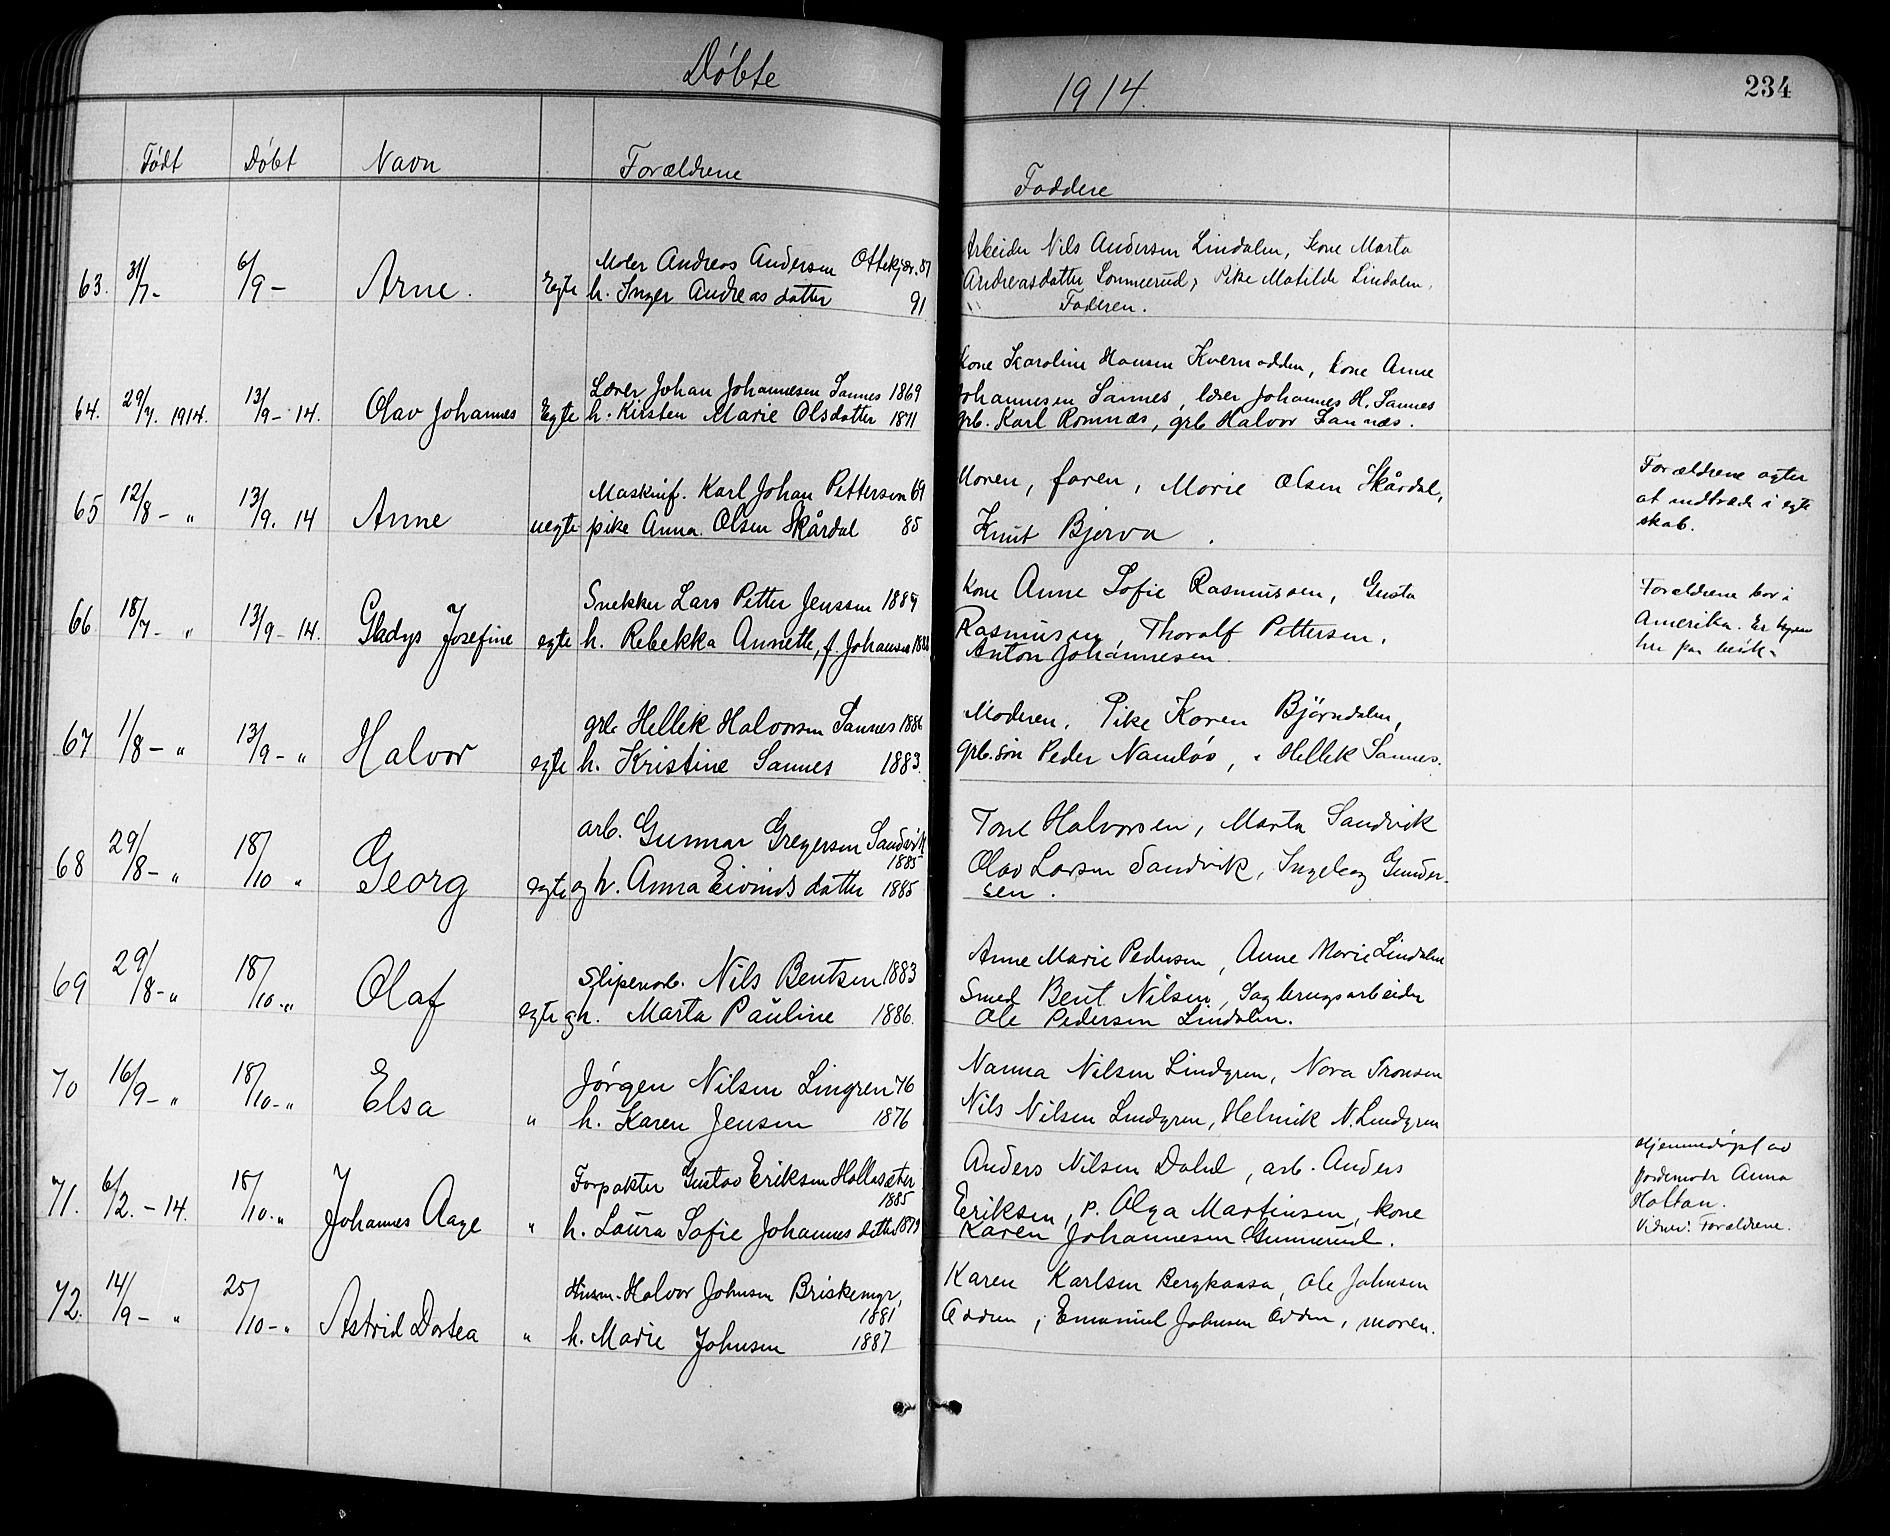 Døbte
1914.
234
Født Døbt Navn Forældrene Faddere
63. 31/7- 6/9- Arne. Egte Maler Andreas Andersen Ottekjær. 87
h. Inger Andreasdatter 91
Arbeider Nils Andersen Lindalen, Kone Marta
Andreasdatter Lonnerud, Pike Matilde Lindalen,
Faderen.
64. 29/7. 1914. 13/9- 14. Olav Johannes Egte Lærer Johan Johannesen Sannes 1869
h. Kirsten Marie Olsdatter 1871
Kone Karoline Hansen Kvernodden, Kone Anne
Johannesen Sannes, lærer Johannes H. Sannes
grb. Karl Romnæs, grb Halvor Sannæs.
65 12/8- " 13/9. 14 Anne uegte Maskinf. Karl Johan Pettersen 69
pike Anna Olsen Skårdal 85
Moren, faren, Marie Olsen Skårdal,
Knut Bjerva.
Forældrene agter
at indtræde i egte
skab.
66 18/7- " 13/9- 14. Gladys Josefine egte Snekker Lars Petter Jenssen 1884
h. Rebekka Annette, f. Johansen 1888
Kone Anne Sofie Rasmussen, Gusta
Rasmusen, Thoralf Pettersen.
Anton Johannesen.
Forældrene bor i
Amerika. Er
her paa besök.
67 1/8- " 13/9- " Halvor egte grb Hellek Halvorsen Sannes 1886
h. Kristine Sannes 1883.
Moderen, Pike Karen Björndalen,
grb.søn Peder Namløs, " Hellek Sannes.
68 29/8- " 18/10 " Georg egte arb. Gunnar Gregersen Sandvik
1885
og h. Anna Eivindsdatter 1885
Tone Halvorsen, Marta Sandvik
Olav Larsen Sandvik, Ingeborg Gunder-
sen.
69 29/8-" 18/10-" Olaf egte Sliperiarb. Nils Bentsen 1883
og h. Marta Pauline 1886.
Anne Marie Pedersen, Anne Marie Lindalen
Smed Bent Nilsen, Sagbrugsarbeider
Ole Pedersen Lindalen.
70 16/9- " 18/10-" Elsa " Jørgen Nilsen Lingren 76
h. Karen Jensen 1876
Nanna Nilsen Lindgren, Nora Tronsen
Nils Nilsen Lindgren, Helmik N. Lindgren
71. 6/2. - 14. 18/10-" Johannes Aage " Forpakter Gustav Eriksen Hollasæter
1885
h. Laura Sofie Johannesdatter 1879
Anders Nilsen Dahl, arb. Anders
Eriksen, p. Olga Martinsen, kone
Karen Johannesen Gunnerud.
Hjemmedøpt av
jordemodr Anna
Holtan.
Vidner: Forældrene.
72. 14/9- " 25/10-" Astrid Dortea " Husm. Halvor Johnsen Briskemyr,
1881
h. Marie Johnsen 1887
Karen Karlsen Bergkaasa, Ole Johnsen
Odden, Emanuel Johnsen Odden, moren.